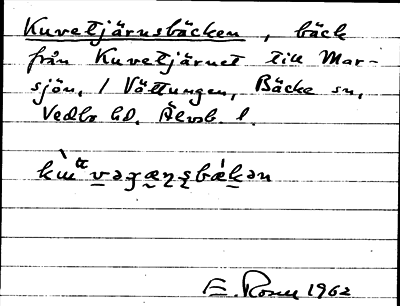 Kuvetjärnsbäcken, bäck
från Kuvetjärnet till Mar-
sjön, / Vättungen, Bäcke sn,
Vedbo hd. Älvsb. l.
E. Rosen 1962